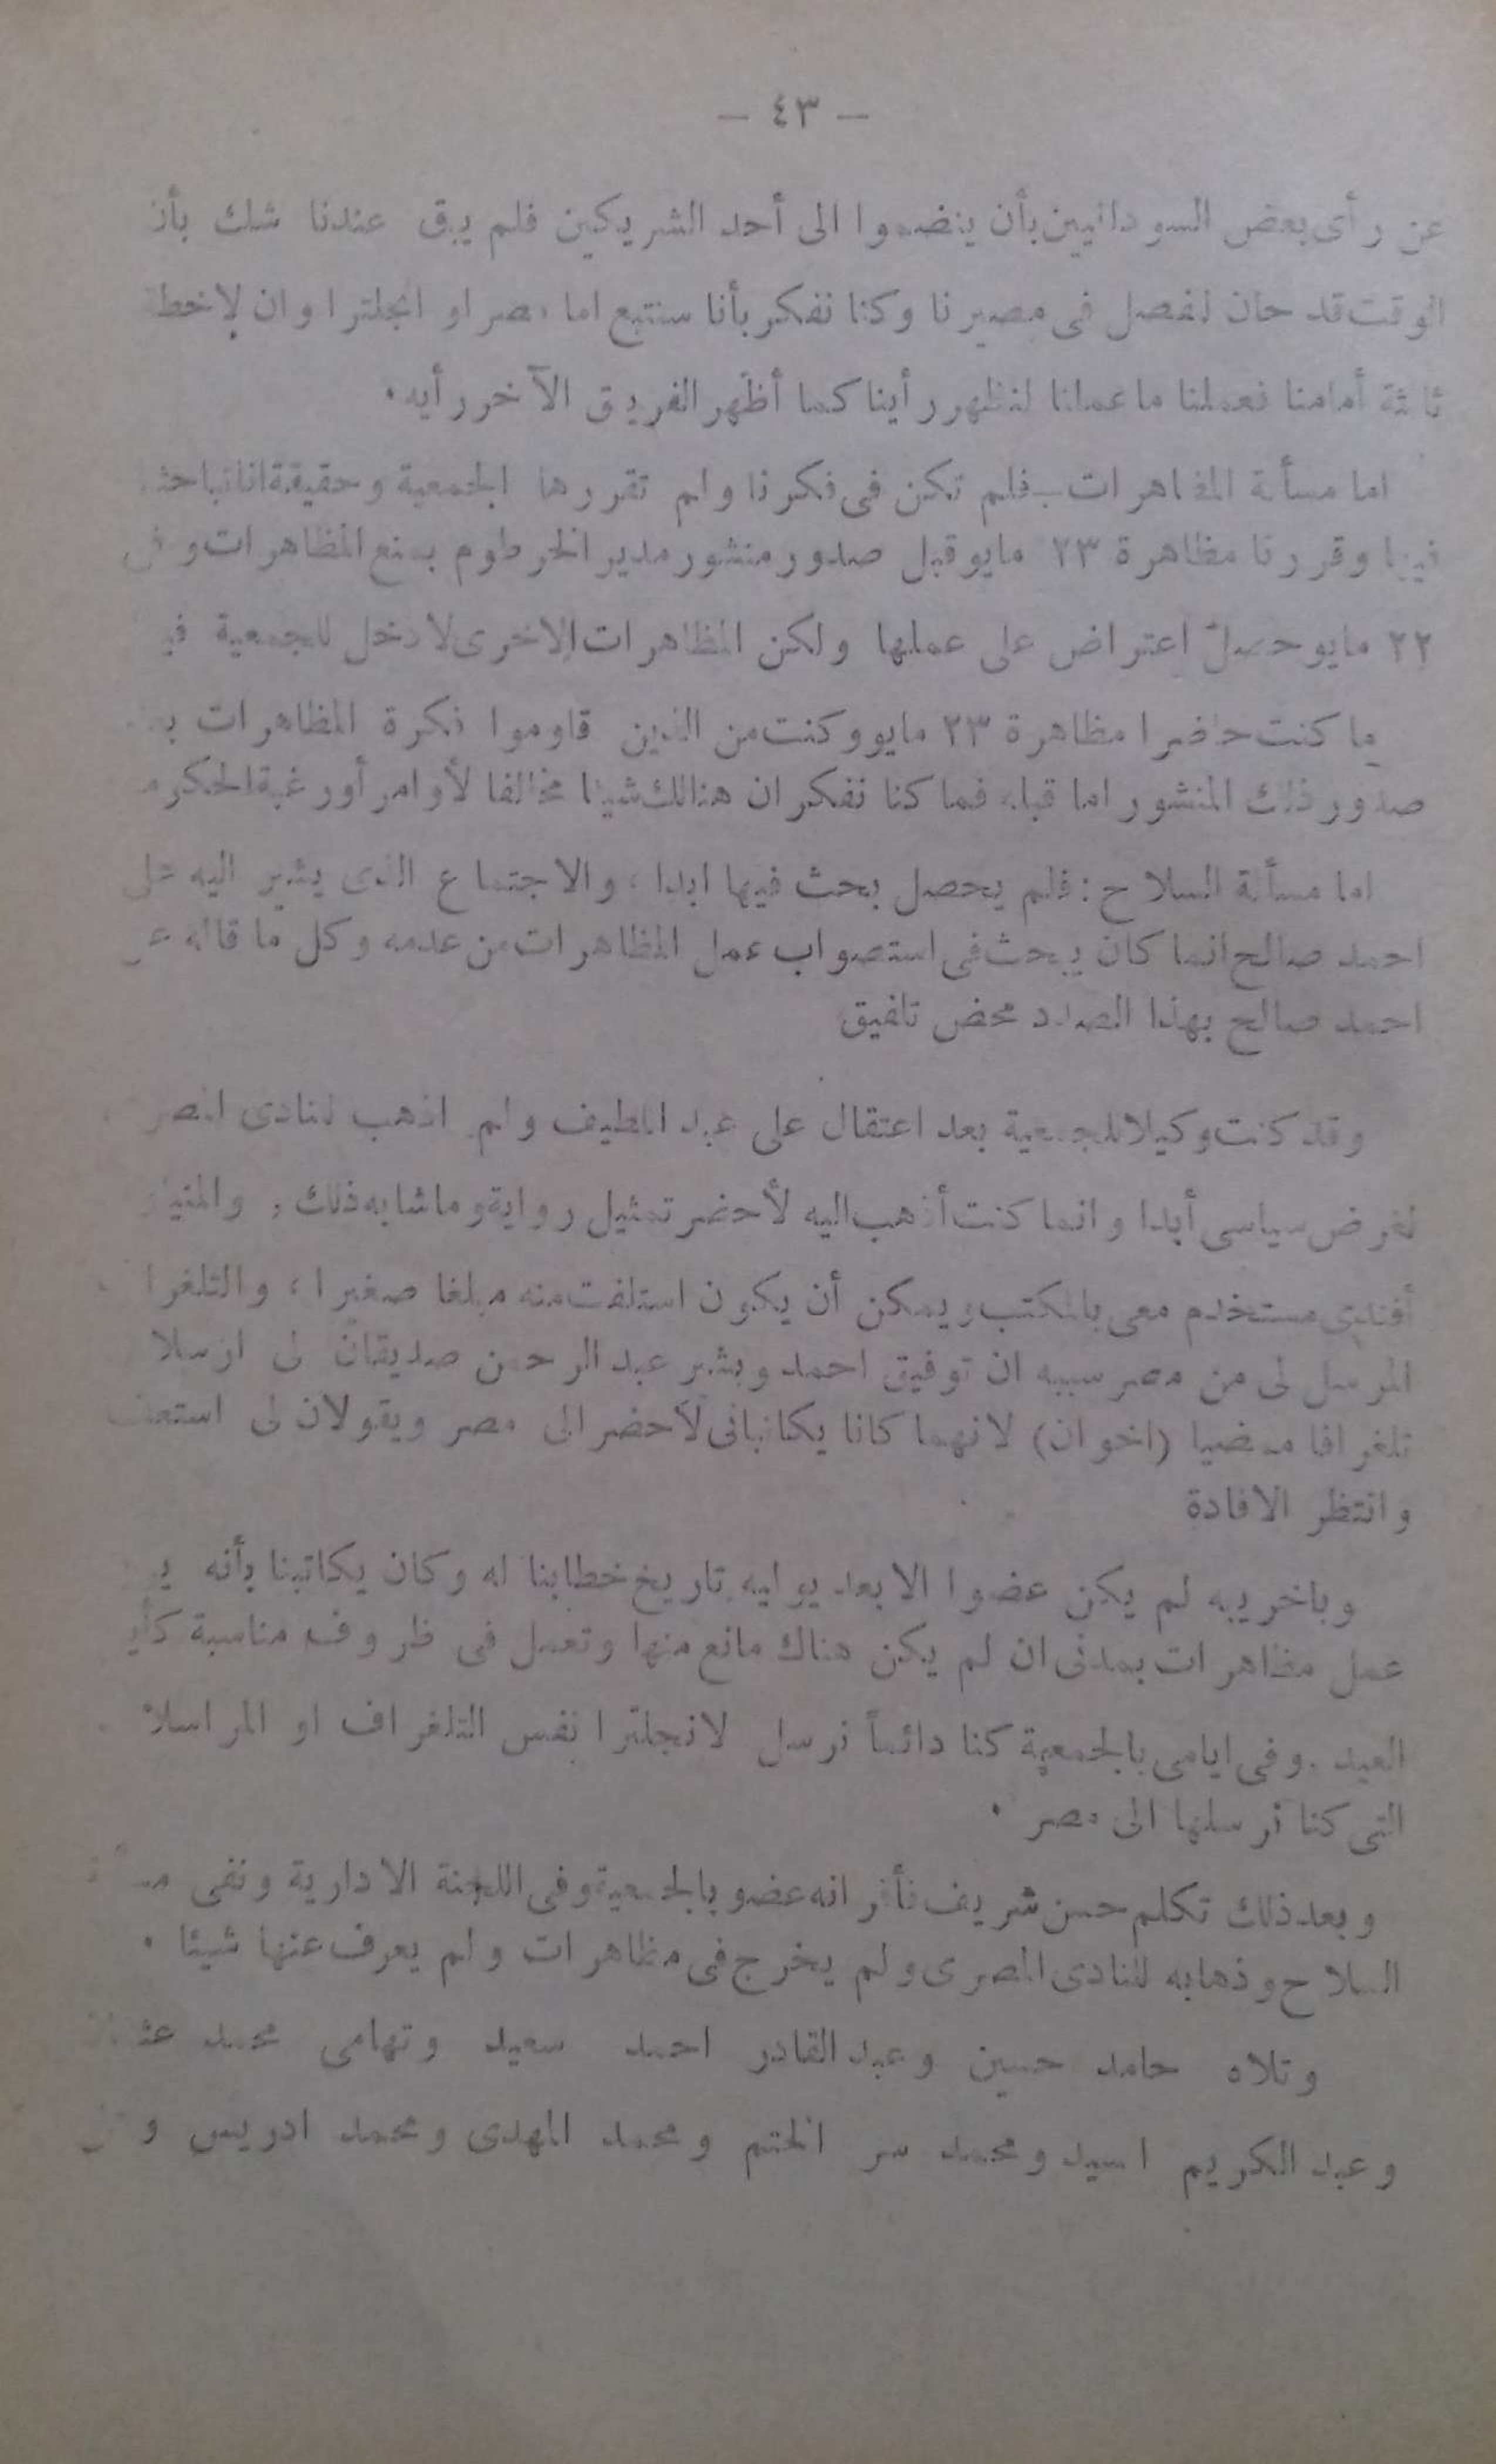 — ٤٣ —
عن رأى بعض السودانيين بأن ينضموا الى أحد الشريكين فلم يبق عندنا شك بأن
الوقت قد حان لفصل فى مصيرنا وكنا نفكر بأنا سنتبع اما مصر او انجلترا وان لا خطة
ثالثة أمامنا فعملنا ما عملنا لنظهر رأينا كما أظهر الفريق الآخر رأيه.
اما مسألة المظاهرات فلم تكن فى فكرنا ولم تقررها الجمعية وحقيقة اننا تباحثنا
فيها وقررنا مظاهرة ٢٣ مايو قبل صدور منشور مدير الخرطوم بمنع المظاهرات
٢٢ مايو حصل اعتراض على عملها ولكن المظاهرات الاخرى لا دخل للجمعية
ما كنت حاضرا مظاهرة ٢٣ مايو وكنت من الذين قاوموا فكرة المظاهرات
صدور ذلك المنشور اما قبله فما كنا نفكر ان هنالك شيئا مخالفا لأوامر أو رغبة الحكومة
اما مسألة السلاح : فلم يحصل بحث فيها ابدا ، والاجتماع الذى يشير اليه على
احمد صالح انما كان يبحث فى استصواب عمل المظاهرات من عدمه وكل ما قاله
احمد صالح بهذا الصدد محض تلفيق
وقد كنت وكيلا للجمعية بعد اعتقال على عبد اللطيف ولم اذهب للنادى
لغرض سياسى أبدا وانما كنت أذهب اليه لأحضر تمثيل رواية وما شابه ذلك ،
أفندى مستخدم معى بالمكتب ويمكن أن يكون استلفت منه مبلغا صغيرا ،
المرسل لى من مصر سببه ان توفيق احمد وبشير عبد الرحمن صديقان لى ارسلا
تلغرافا ممضيا (اخوان) لانهما كانا يكاتبانى لأحضر الى مصر ويقولان لى
وانتظر الافادة
وباخريبه لم يكن عضوا الا بعد يوليه تاريخ خطابنا له وكان يكاتبنا بأنه
عمل مظاهرات بمدنى ان لم يكن هناك مانع منها وتعمل فى ظروف مناسبة
العيد . وفى ايامى بالجمعية كنا دائماً نرسل لانجلترا نفس التلغراف او
التى كنا نرسلها الى مصر .
وبعد ذلك تكلم حسن شريف فأقر انه عضو بالجمعية وفى اللجنة الادارية ونفى
السلاح وذهابه للنادى المصرى ولم يخرج فى مظاهرات ولم يعرف عنها شيئا .
وتلاه حامد حسين وعبد القادر احمد سعيد وتهامى محمد
وعبد الكريم السيد ومحمد سر الختم ومحمد المهدى ومحمد ادريس